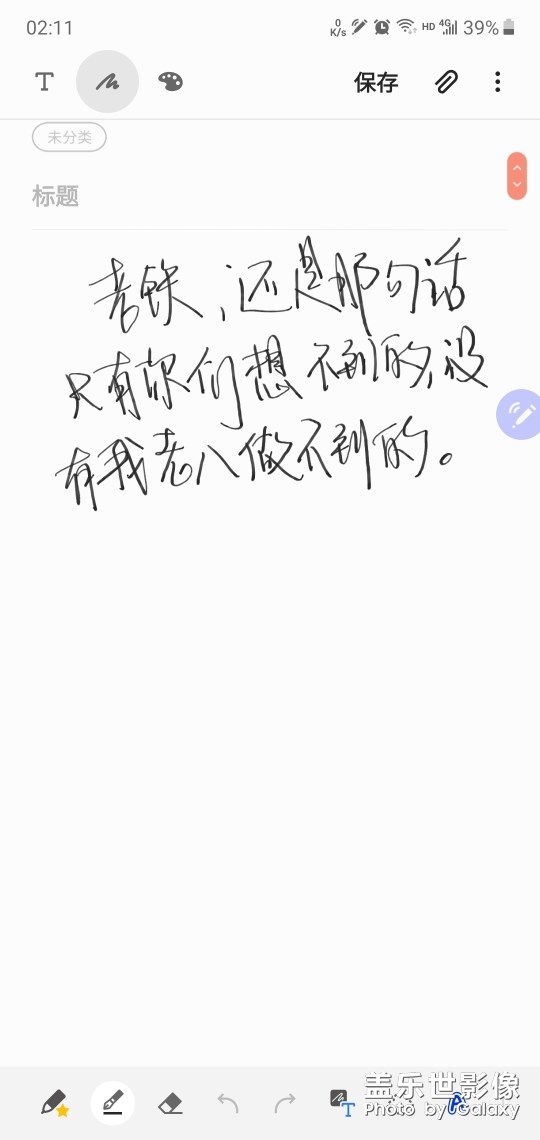 02:11
0
K/s
HD
4G
39%
T
保存
未分类
标题
老铁，还是那句话
只有你们想不到的，没
有我老八做不到的。
T
A
盖乐世影像
Photo by Galaxy